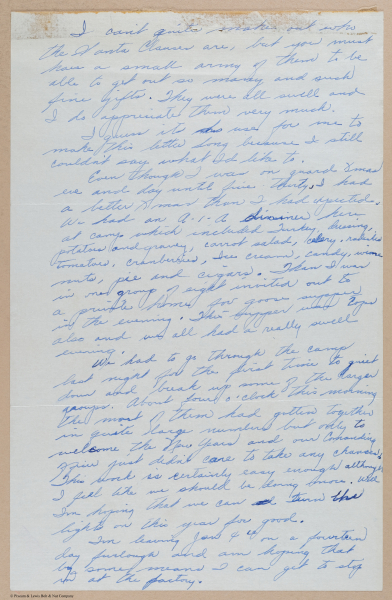 I can't quite make out who
the Santa Clauses are, but you must
have a small army of them to be
able to get out so many and such
fine gifts. They were all swell and
I do appreciate them very much.
I guess its no use for me to
make this letter long because I still
couldn't say what I'd like to.
Even though I was on guard Xmas
eve and day until five-thirty, I had
a better Xmas than I had expected.
We had an A-1-A dinner here
at camp which included Turkey, dressing,
potatoes and gravy, carrot salad, celery, radishes
tomatoes, cranberries, Ice cream, candy, wine
nuts, pie and cigars. Then I was
in group of eight invited out to
a private home for goose supper
in the evening. This supper was tops
also and we all had a really swell
evening.
We had to go through the camp
last night for the first time to quiet
down and break up some of the larger
groups. About four o'clock this morning
the most of them had gotten together
in quite large numbers but only to
welcome the New Years and our Comanding
officer just didn't care to take any chances.
This work is certainly easy enough although
I feel like we should be doing more. Well
I'm hoping that we can turn the
lights on this year for good.
I'm leaving Jan 4th on a fourteen
day furlough and am hoping that
by some means I can get to stop
in at the factory.
© Preston & Lewis Bolt & Nut Company